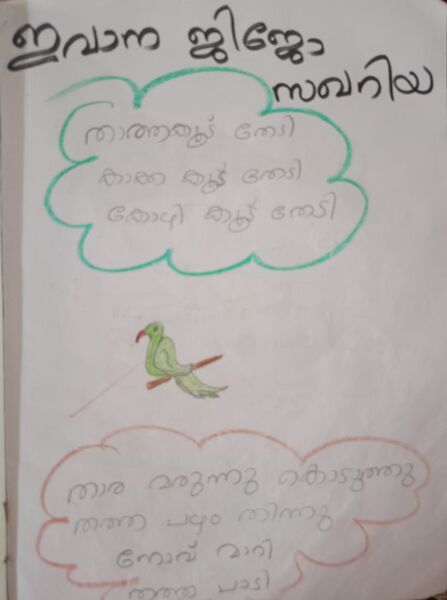 ഇവാന ജിജോ
സഖറിയ
താത്തകൂട് തേടി
കാക്ക കൂട് തേടി
കോഴി കൂട് തേടി
താര വരുന്നു കൊടുത്തു
തത്ത പഴം തിന്നു
നോവ് മാറി
തത്ത പാടി